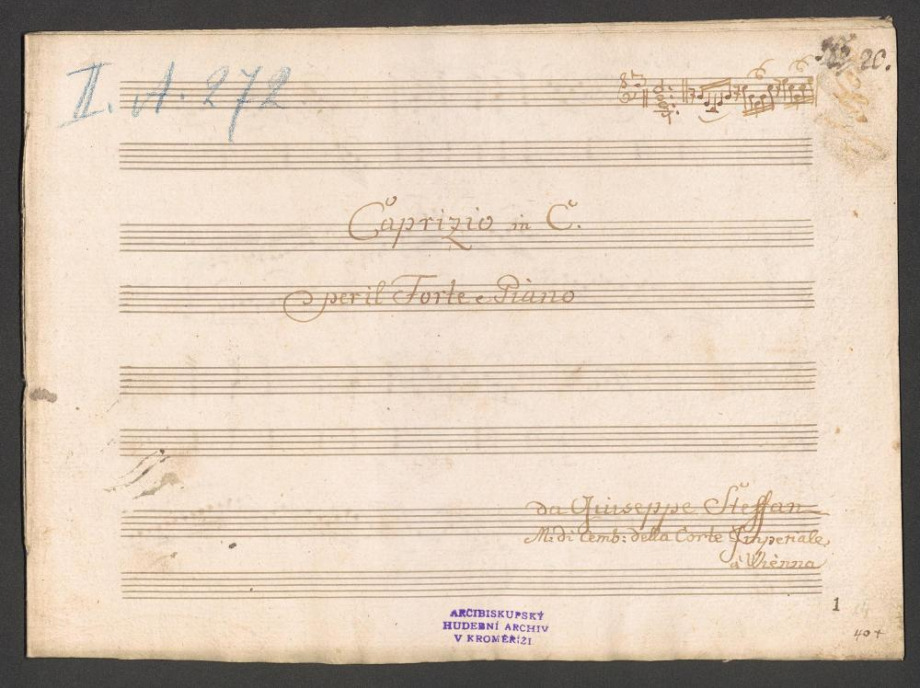 II. A. 272
20.
Caprizio in C.
per il Forte e Piano
da Giuseppe Steffan
M: di Cemb: della Corte Imperiale
à Vienna
1
ARCIBISKUPSKÝ
HUDEBNÍ ARCHIV
V KROMĚŘÍŽI